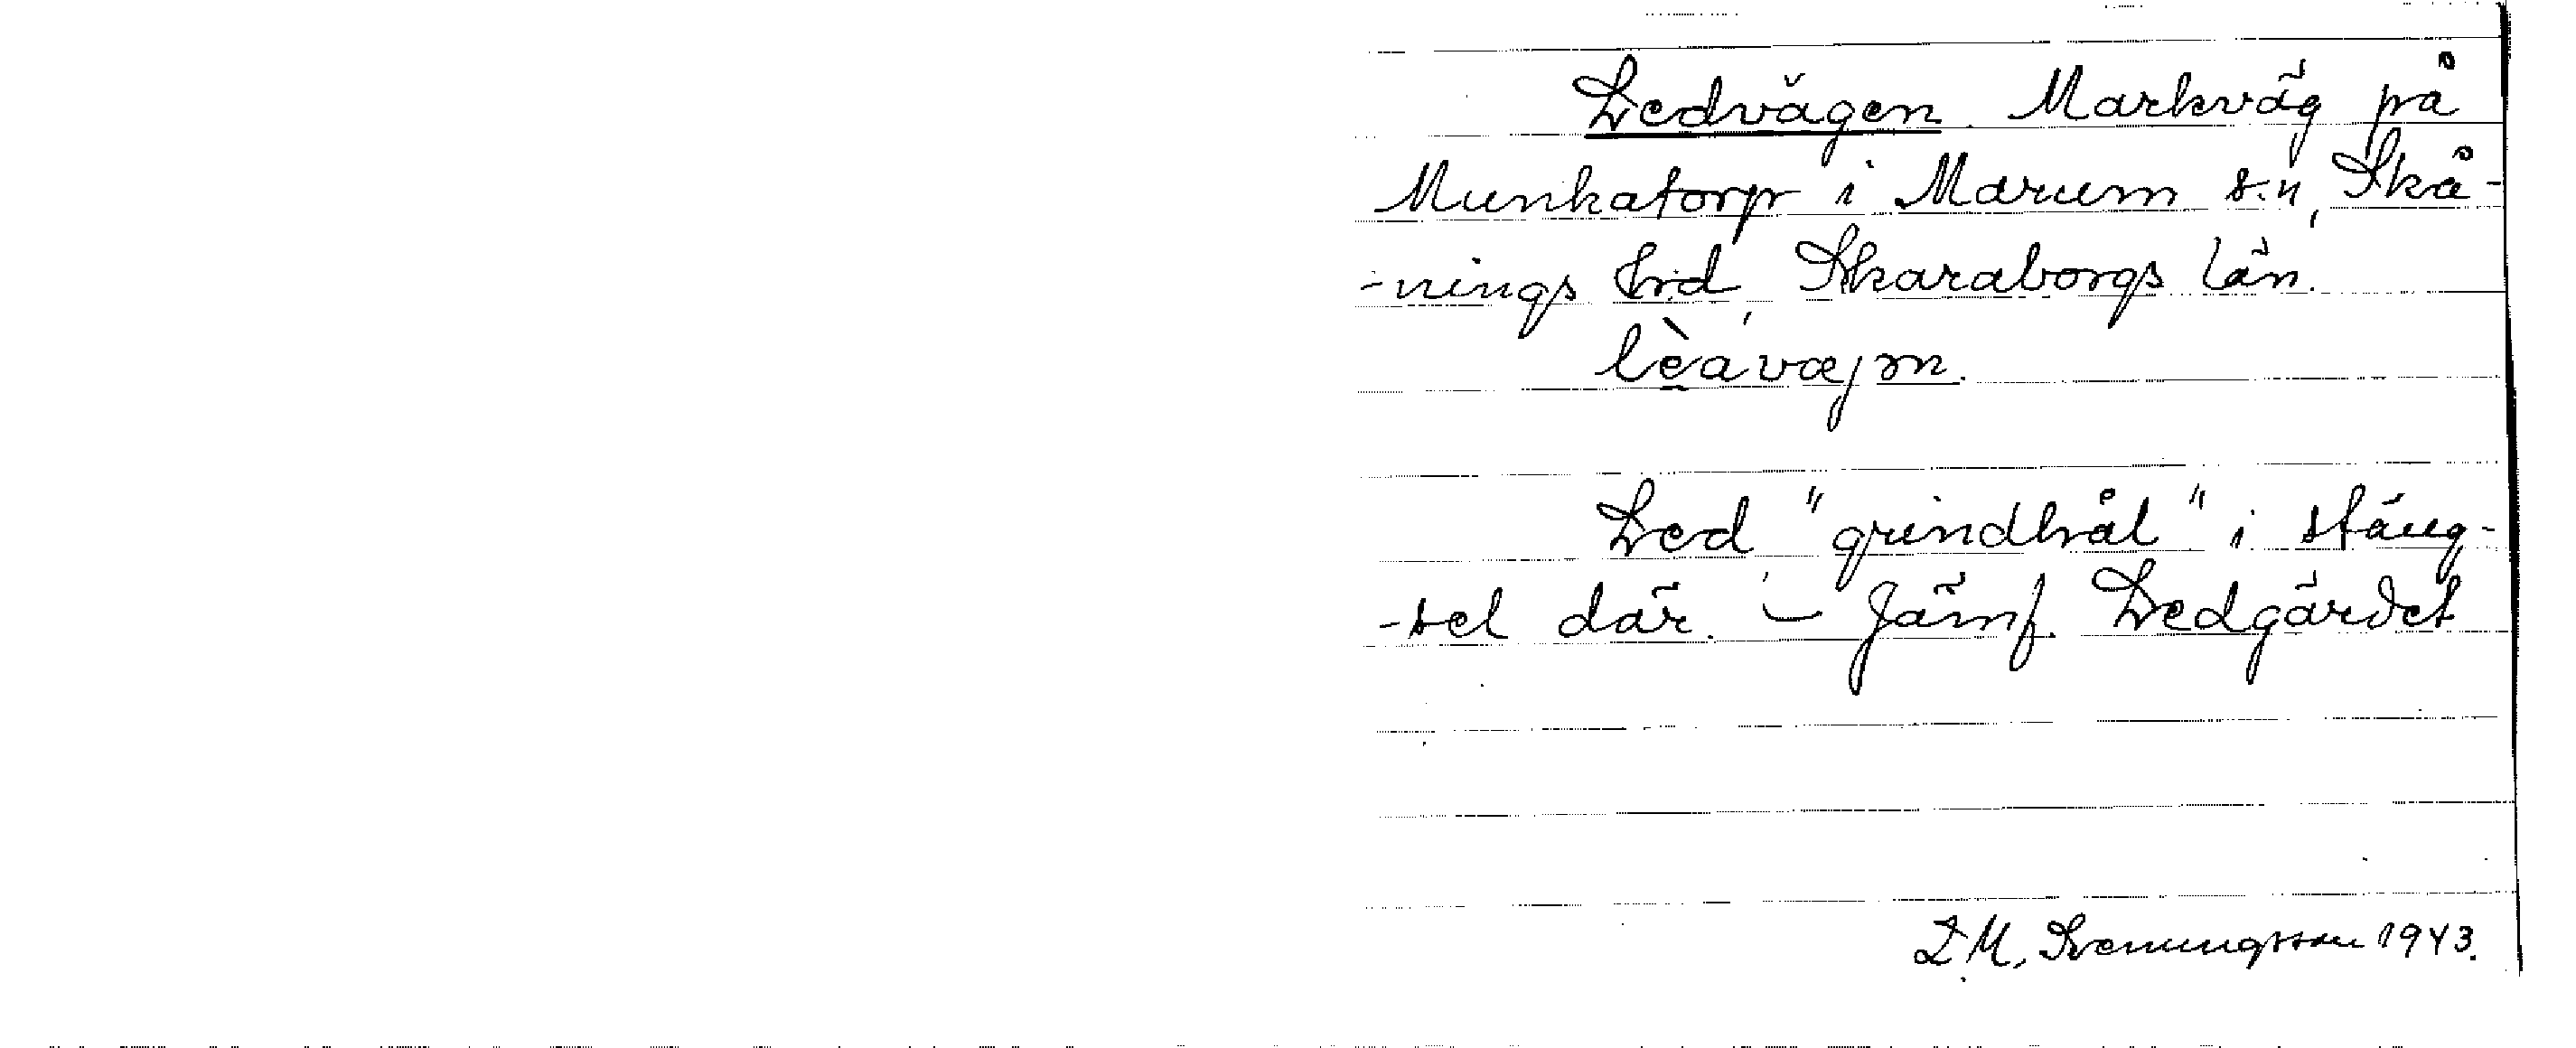 Ledvägen. Markväg på
Munkatorp i Marum s:n, Skå-
-nings hd, Skaraborgs län.
lèavæjm.
Led "grindhål" i stäng-
-sel där. – Jämf. Ledgärdet
D.M. Svenungsson 1943.